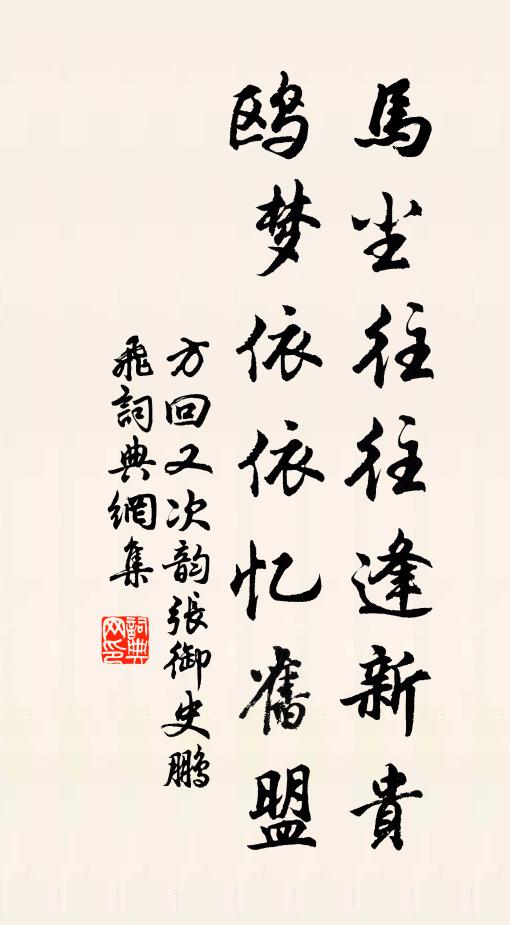 馬尘往往逢新貴
鸥梦依依忆舊盟
方回又次韵張御史鹏
飛詞典網集
詞典网印